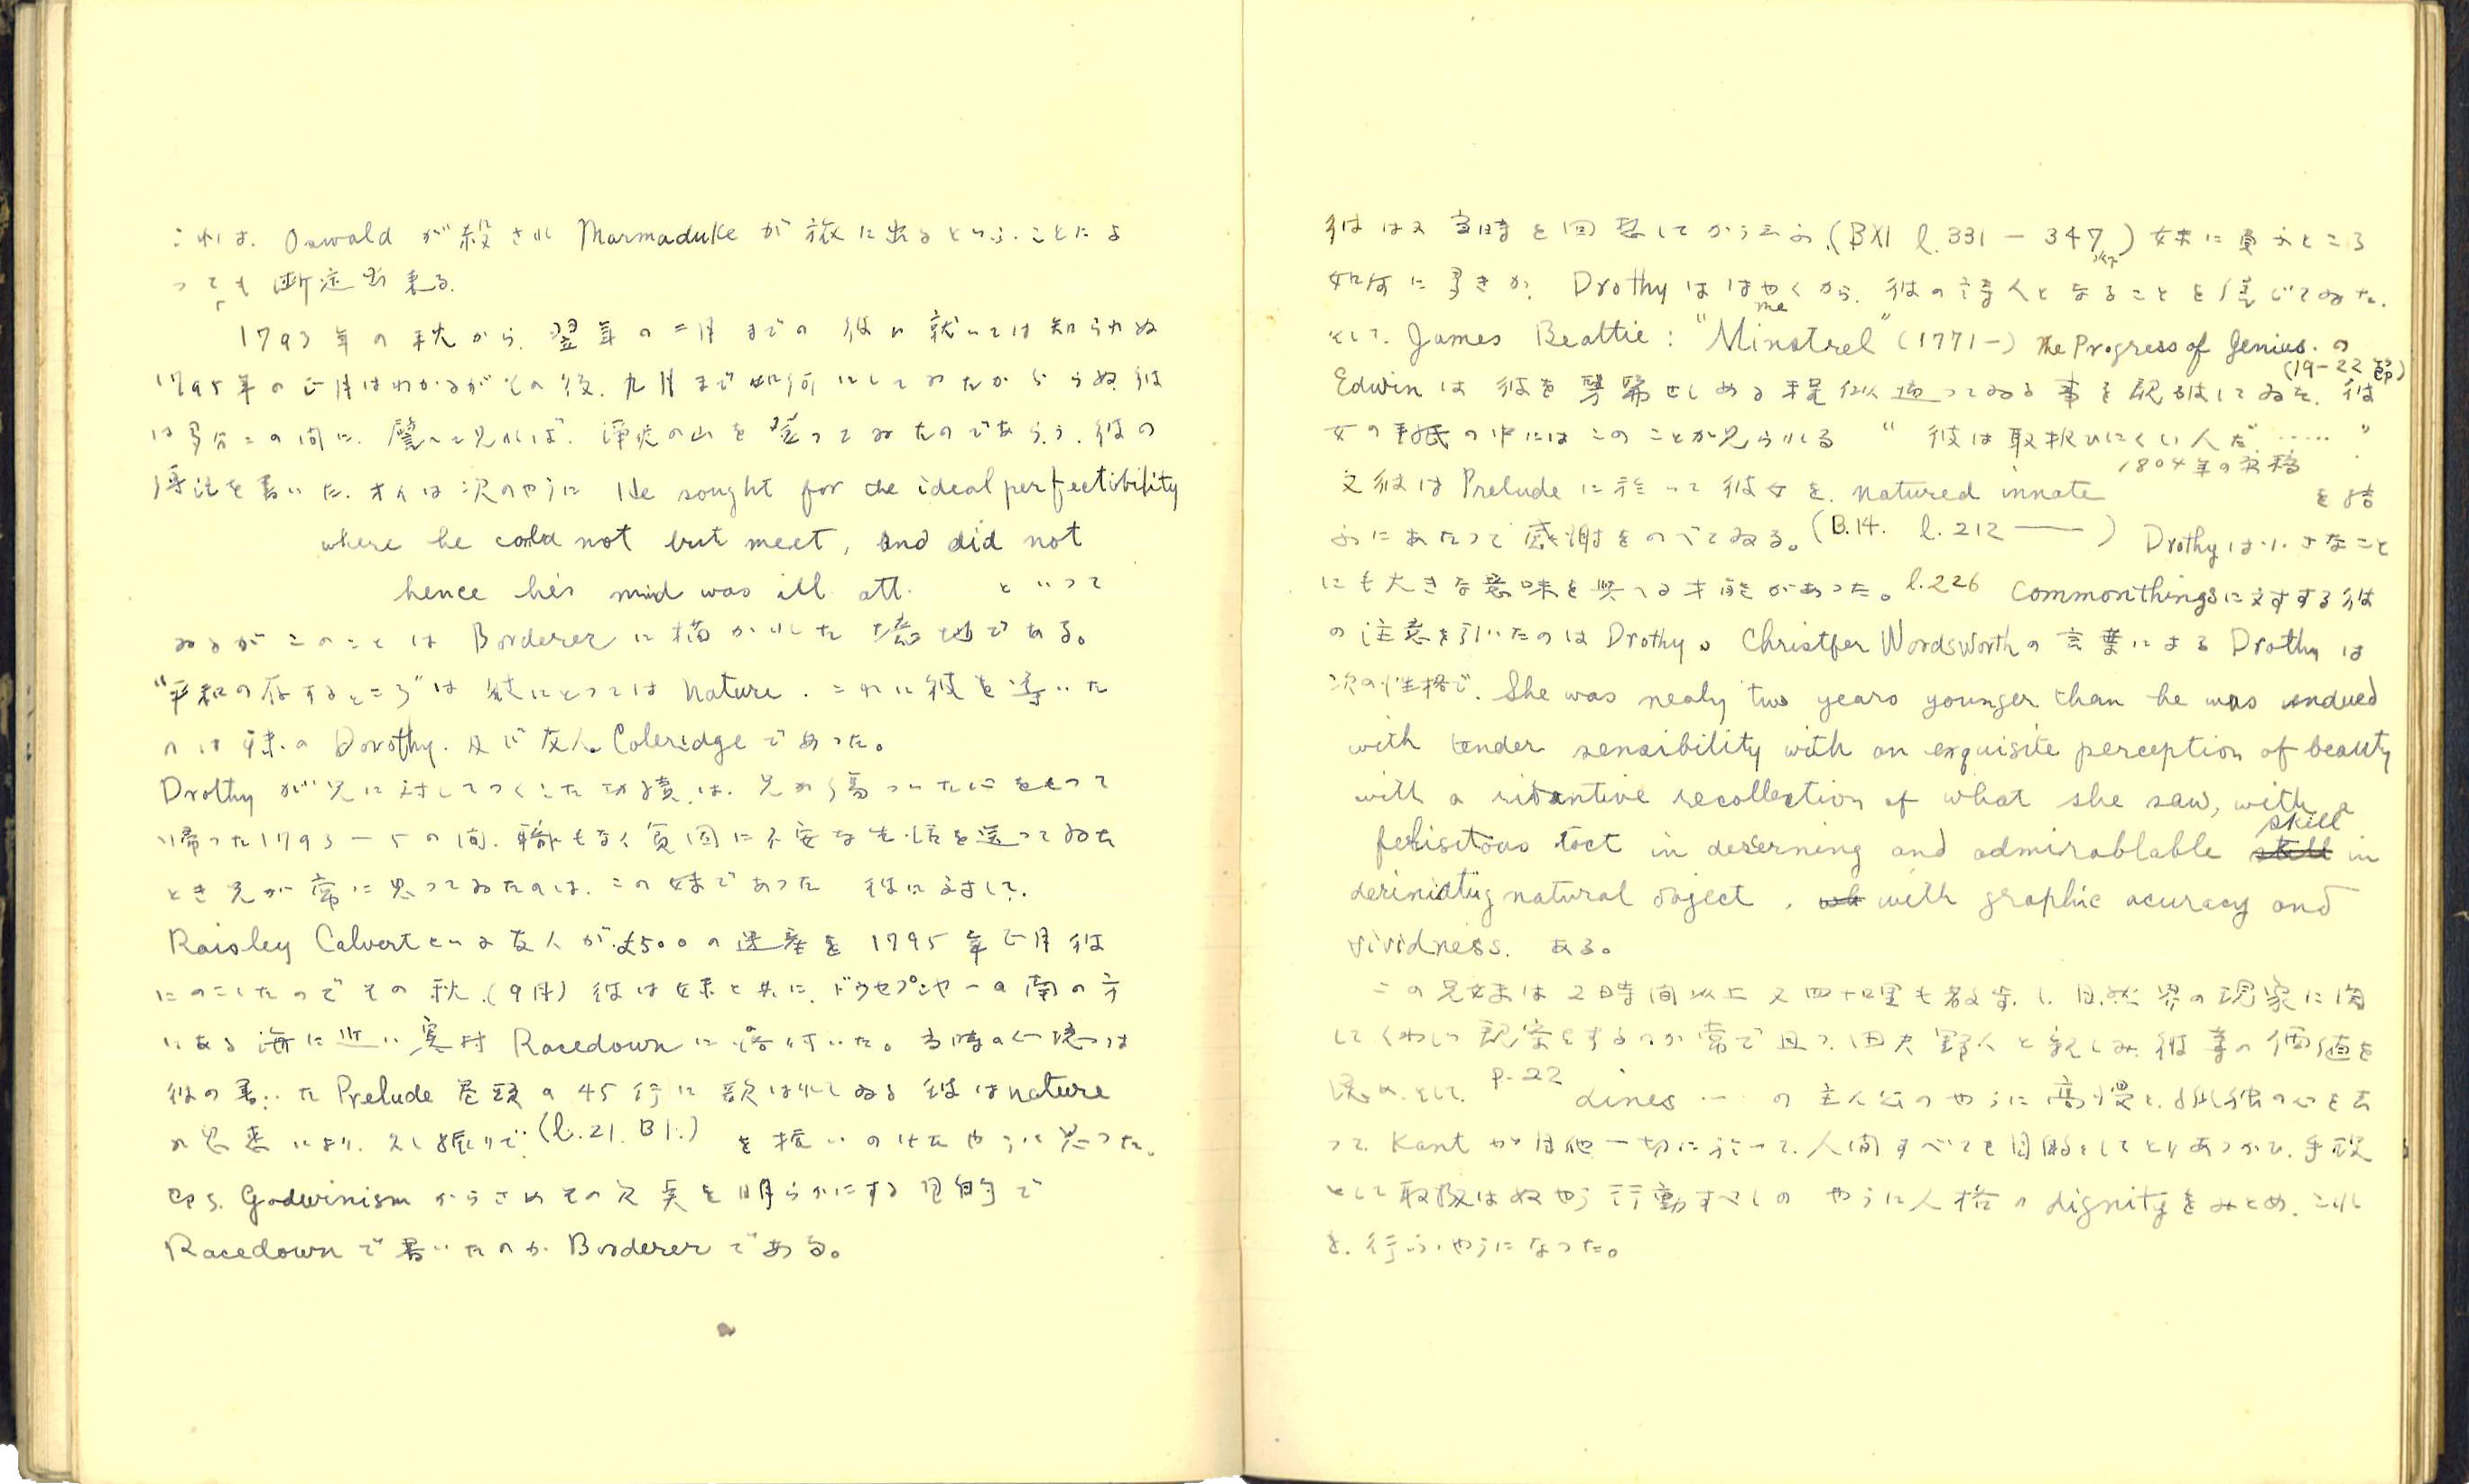 これは、Oswald が殺され Marmaduke が旅に出るといふことによ
っても断定出来る.
1793年の秋から、翌年の二月までの彼に就いては知られぬ
1795年の正月はわかるがその後、九月まで如何にしてゐたか分らぬ、彼
は多分この間に、譬へて見れば、浄徒の山を登ってゐたのであらう、彼の
傳記を書いた、オイは次のやうに He sought for the ideal perfectibility
where he could not but meet, and did not
hence he's mind was ill att. といって
ゐるがこのことは Borderer に描かれた境地である。
"平和の存するところ"は彼にとっては nature. これに彼を導いた
のは妹の Dorothy. 及び友人 Coleridge であった。
Drothy が兄に対してつくした功績は、兄が傷ついた心をもって
帰った1793－5の間、職もなく貧困に不安な生活を送ってゐた
とき兄が常に思ってゐたのは、この妹であった 彼に対して、
Raisley Calvert といふ友人が £500 の遺産を 1795年正月彼
にのこしたのでその秋(9月)彼は妹と共に、ドウセプシヤーの南の方
にある海に近い寒村 Racedown に落付いた。当時の心境は
彼の書いた Prelude 巻頭の45行に歌はれてゐる 彼は nature
の恩恵により、久し振りで (l. 21. B I.) を拭いのけたやうに思った。
eps. Godwinism からさめその欠臭を明らかにする目的で
Racedown で書いたのが Borderer である。
彼は又当時を回想してかう云ふ、(BXI l. 331 － 347以下) 妹に負ふところ
如何に多きか、Drothy ははやくから、彼の詩人となることを信じてゐた.
そして、James Beattie : "Minstrel" (1771－) The Progress of Genius. の
(19－22節)
Edwin は彼を髣髴せしめる程似通ってゐる事を認めてゐた. 彼
女の手紙の中にはこのことが見られる "彼は取扱ひにくい人だ ....."
1804年の草稿
又彼は Prelude に於って彼女を. natured innate を結
ふにあたって感謝をのべてゐる。(B.14. l. 212 ── ) Drothy は小さなこと
にも大きな意味を與へる才能があった。l.226 Commonthings に対する彼
の注意を引いたのは Drothy。Christfer Wordsworth の言葉による Drothy は
次の性格で. She was nealy two years younger than he was endued
with tender sensibility with an exquisite perception of beauty
with a ritantive recollection of what she saw, with a
felisitous tact in deserning and admirablable skill in
deriniating natural ogject, with graphic acuracy and
vividness. ある。
この兄妹は2時間以上又四十哩も散歩し、自然界の現象に関
してくわしい観察をするのが常で且つ、田夫野人と親しみ彼等の価値を
認め、そして p.22 Lines … の主人公のやうに高慢と、孤独の心を去
って、Kant が自他一切に於って、人間すべてを目的としてとりあつかひ、手段
として取扱はぬやう行動すべしの やうに人格の dignity をみとめ、これ
を、行ふやうになった。